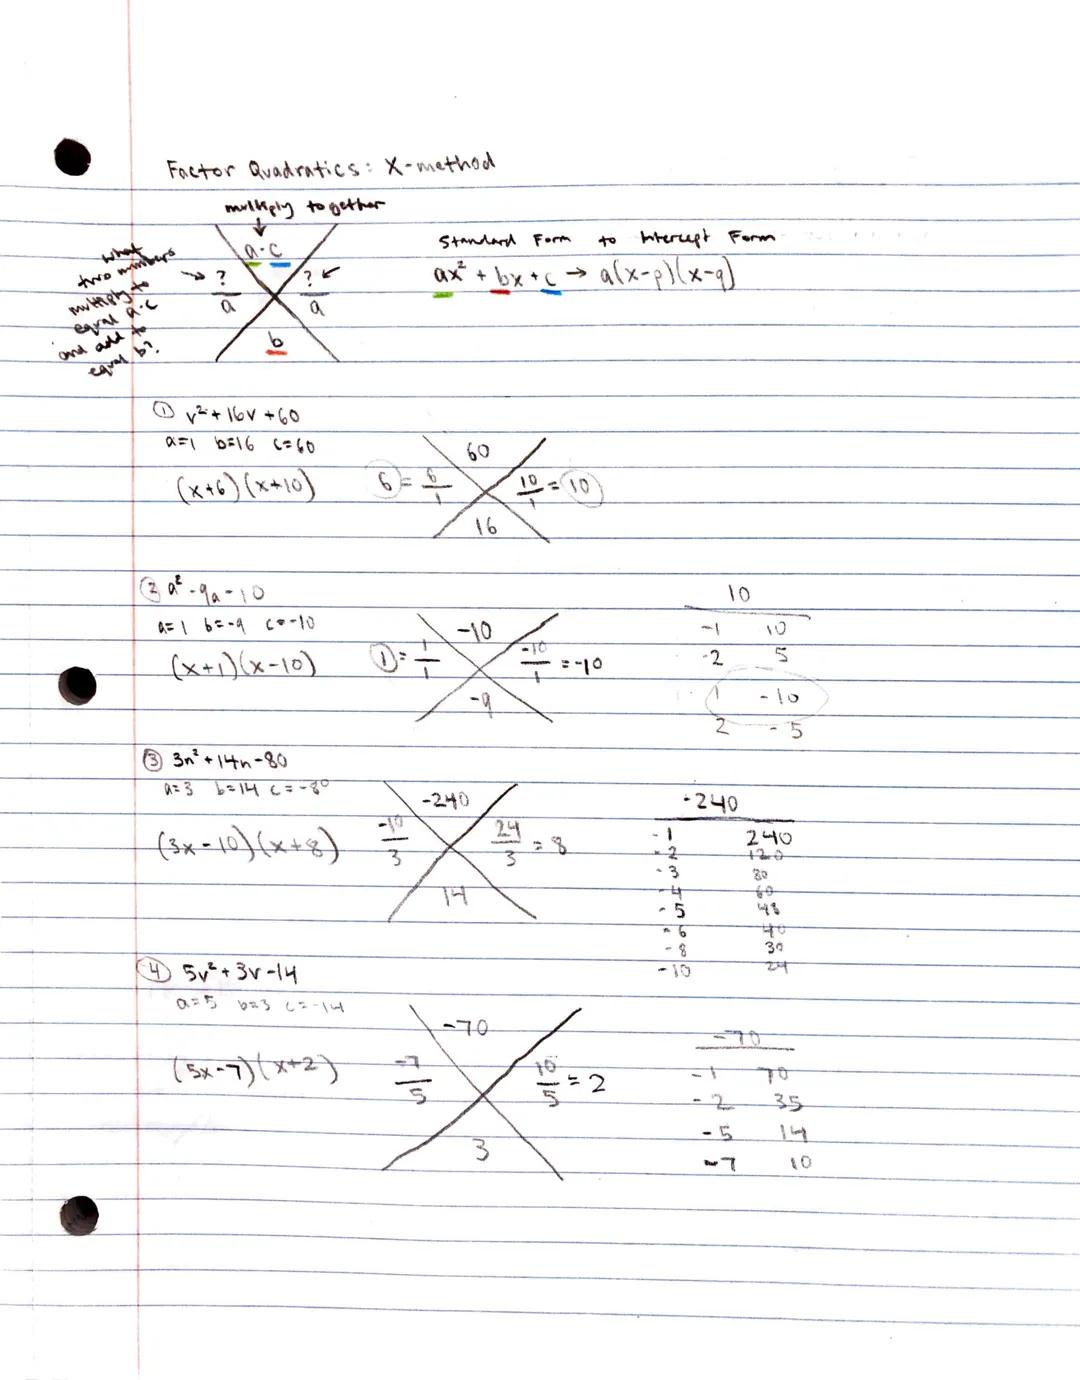 Factor Quadratics: X-method
multiply together
a·c
? ?
a a
b
what
two numbers
multiply to
equal a·c
and add to
equal b?
Standard Form to Intercept Form
ax² + bx + c → a(x-p)(x-q)
① v² + 16v + 60
a=1 b=16 c=60
(x+6)(x+10)
60
6 = 6/1 10/1 = 10
16
② a² - 9a - 10
a=1 b=-9 c=-10
(x+1)(x-10)
-10
1 = 1/1 -10/1 = -10
-9
10
-1 10
-2 5
1 -10
2 -5
③ 3n² + 14n - 80
a=3 b=14 c=-80
(3x-10)(x+8)
-240
-10/3 24/3 = 8
14
-240
-1 240
-2 120
-3 80
-4 60
-5 48
-6 40
-8 30
-10 24
④ 5v² + 3v - 14
a=5 b=3 c=-14
(5x-7)(x+2)
-70
-7/5 10/5 = 2
3
-70
-1 70
-2 35
-5 14
-7 10